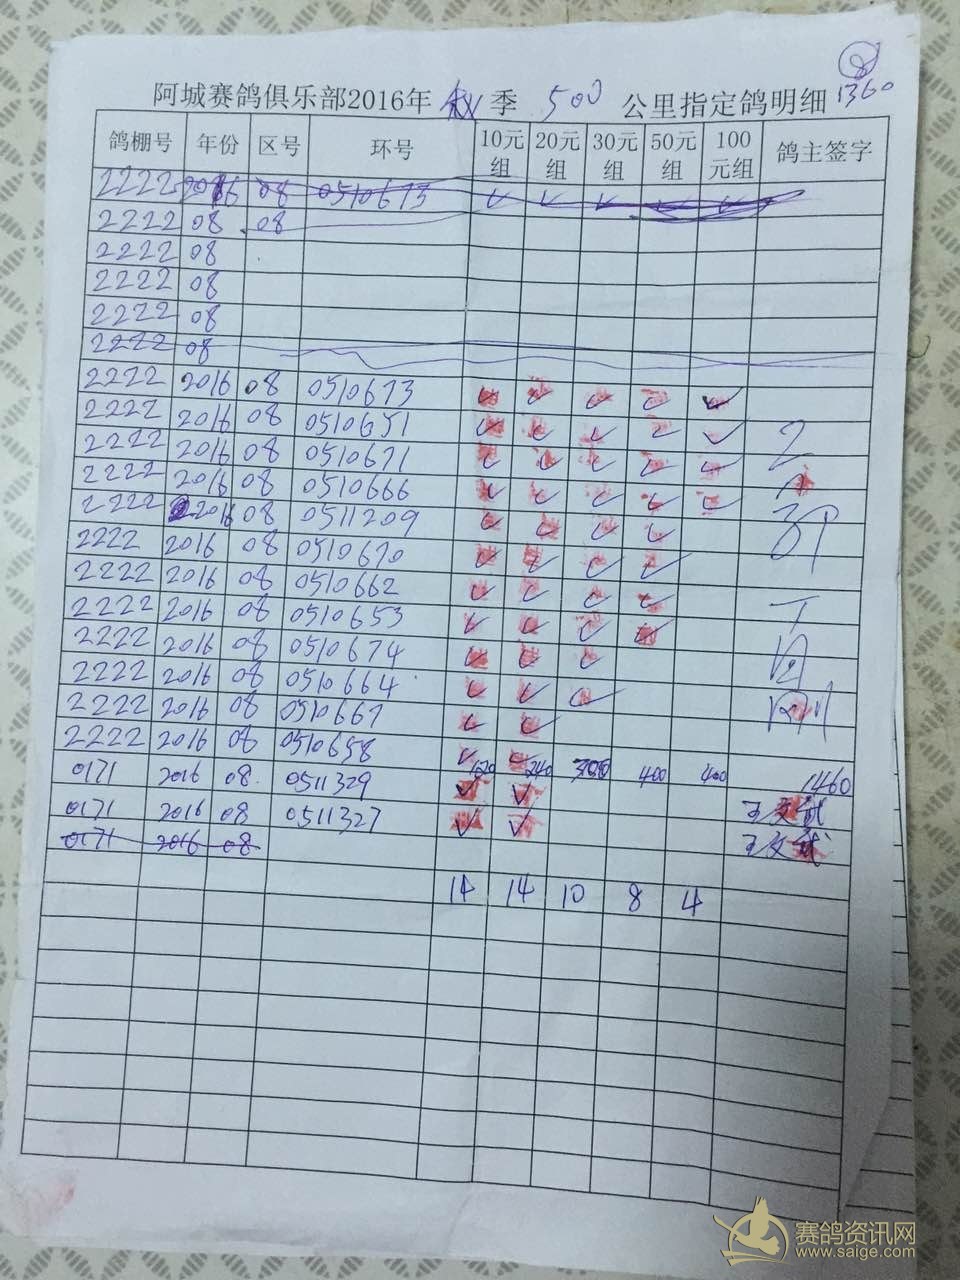 ⑧
阿城赛鸽俱乐部2016年 秋 季 500 公里指定鸽明细 1360
鸽棚号 年份 区号 环号 10元组 20元组 30元组 50元组 100元组 鸽主签字
2222 2016 08 0510673 ✓ ✓ ✓ ✓ ✓
2222 08 08
2222 08
2222 08
2222 08
2222 08
2222 2016 08 0510673 ✓ ✓ ✓ ✓ ✓
2222 2016 08 0510651 ✓ ✓ ✓ ✓ ✓
2222 2016 08 0510671 ✓ ✓ ✓ ✓ ✓
2222 2016 08 0510666 ✓ ✓ ✓ ✓ ✓
2222 2016 08 0511209 ✓ ✓ ✓ ✓
2222 2016 08 0510670 ✓ ✓ ✓ ✓
2222 2016 08 0510662 ✓ ✓ ✓ ✓
2222 2016 08 0510653 ✓ ✓ ✓ ✓
2222 2016 08 0510674 ✓ ✓ ✓
2222 2016 08 0510664 ✓ ✓ ✓
2222 2016 08 0510667 ✓ ✓
2222 2016 08 0510658 ✓ ✓
120 240 300 400 400 1460
0171 2016 08 0511329 ✓ ✓ 王文斌
0171 2016 08 0511327 ✓ ✓ 王文斌
0171 2016 08
14 14 10 8 4
赛鸽资讯网
www.saige.com